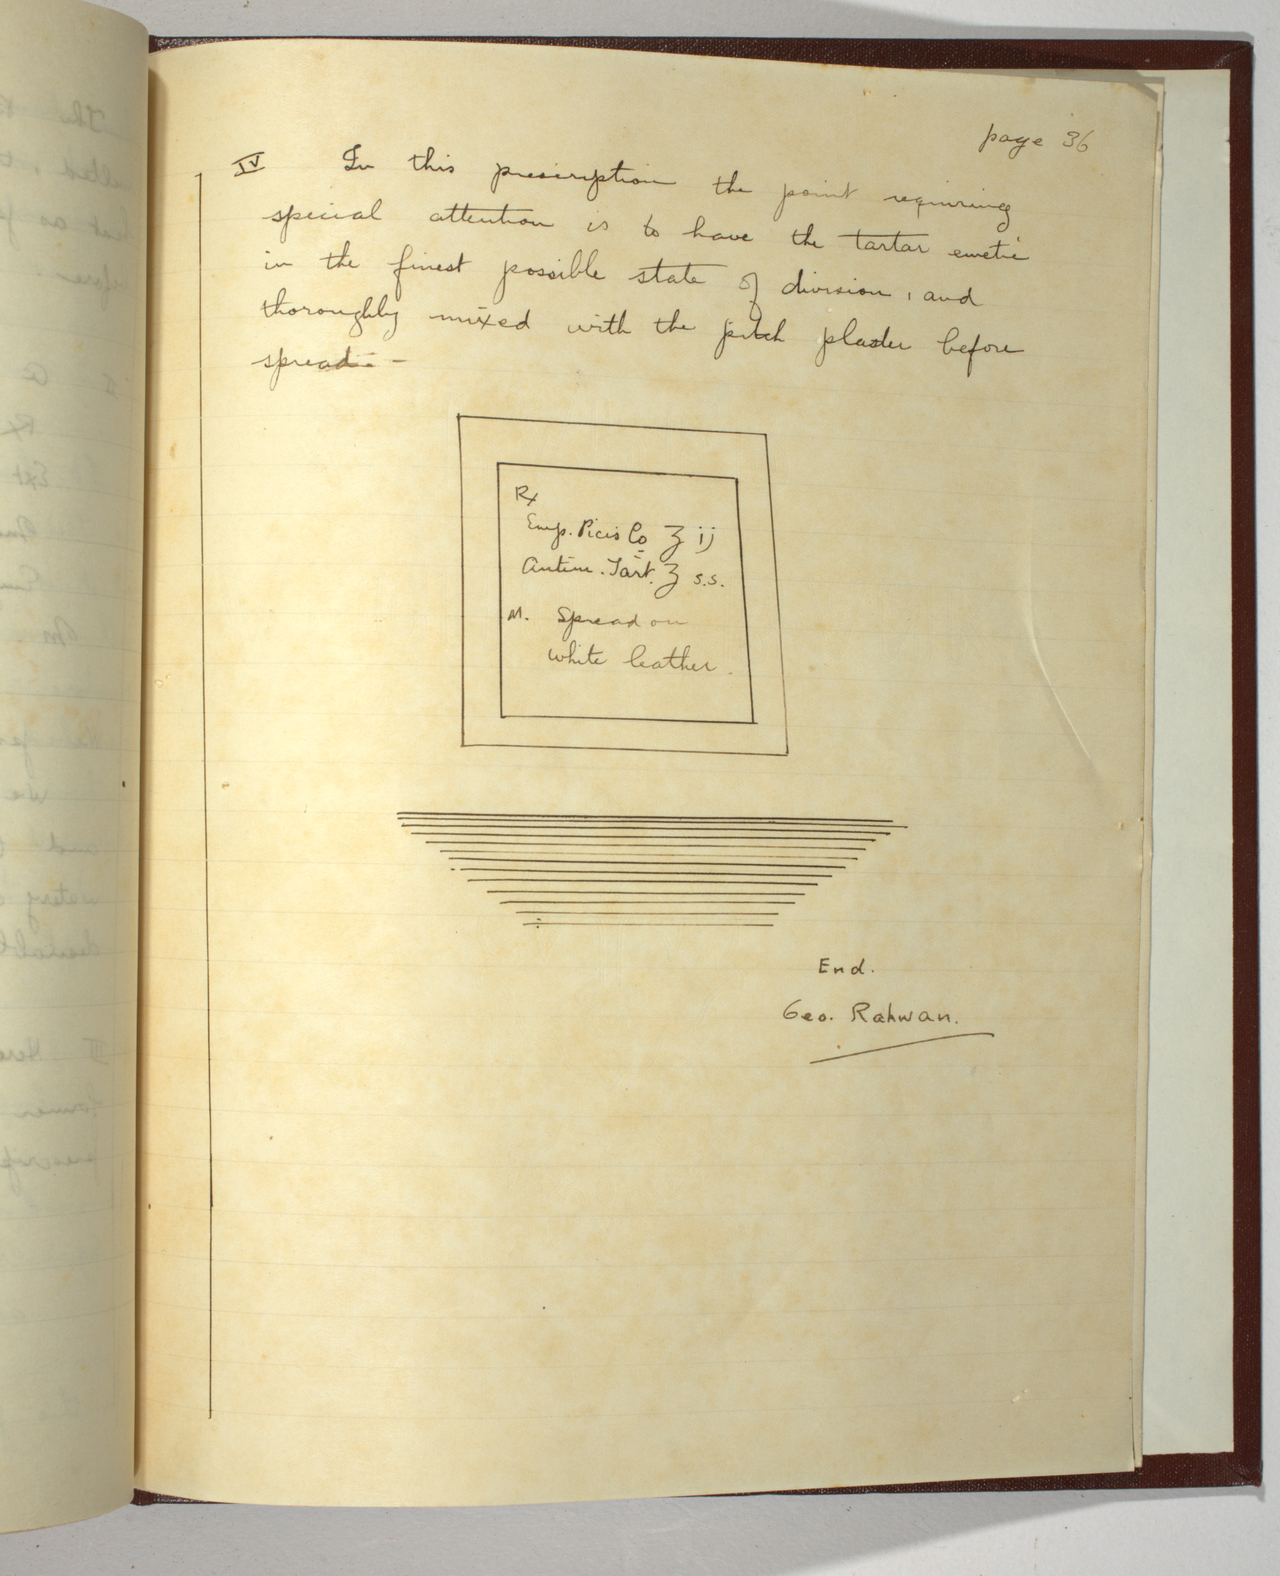 page 36
IV In this prescription the point requiring
special attention is to have the tartar emetic
in the finest possible state of division, and
thoroughly mixed with the pitch plaster before
spread -
Rx
Emp. Picis Co ʒ ij
Antim. Tart. ʒ s.s.
M. Spread on
white leather.
End.
Geo. Rahwan.